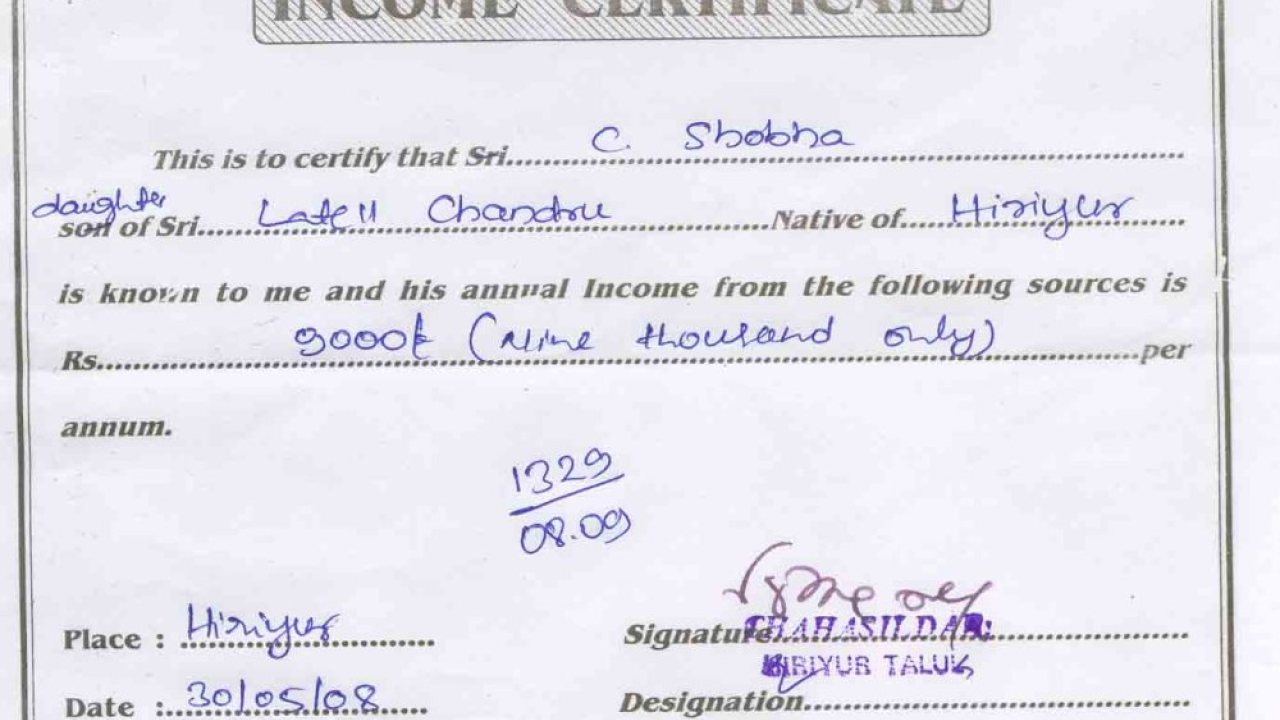 INCOME CERTIFICATE
This is to certify that Sri. C. Shobha
daughter
son of Sri. Chandru Native of. Hiriyur
is known to me and his annual Income from the following sources is
Rs. 9000/- (Nine thousand only) per
annum.
1329
08.09
Place : Hiriyur
Signature THAHASILDAR
HIRIYUR TALUK
Date : 30/05/08
Designation